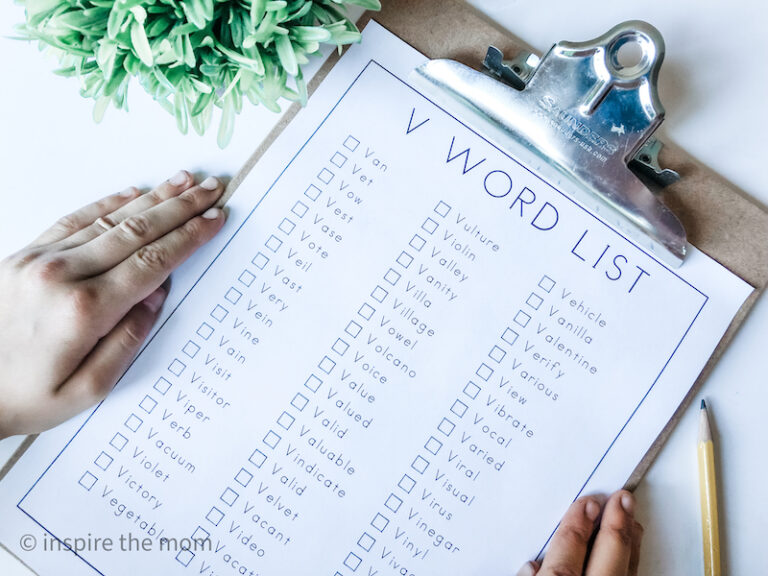 V WORD LIST
Van
Vet
Vow
Vest
Vase
Vote
Veil
Vast
Very
Vein
Vine
Vain
Visit
Visitor
Viper
Verb
Vacuum
Violet
Victory
Vegetable
Vulture
Violin
Valley
Vanity
Villa
Village
Vowel
Volcano
Voice
Value
Valued
Valid
Valuable
Vindicate
Valid
Velvet
Vacant
Video
Vehicle
Vanilla
Valentine
Verify
Various
View
Vibrate
Vocal
Varied
Viral
Visual
Virus
Vinegar
Vinyl
SAUNDERS
© inspire the mom